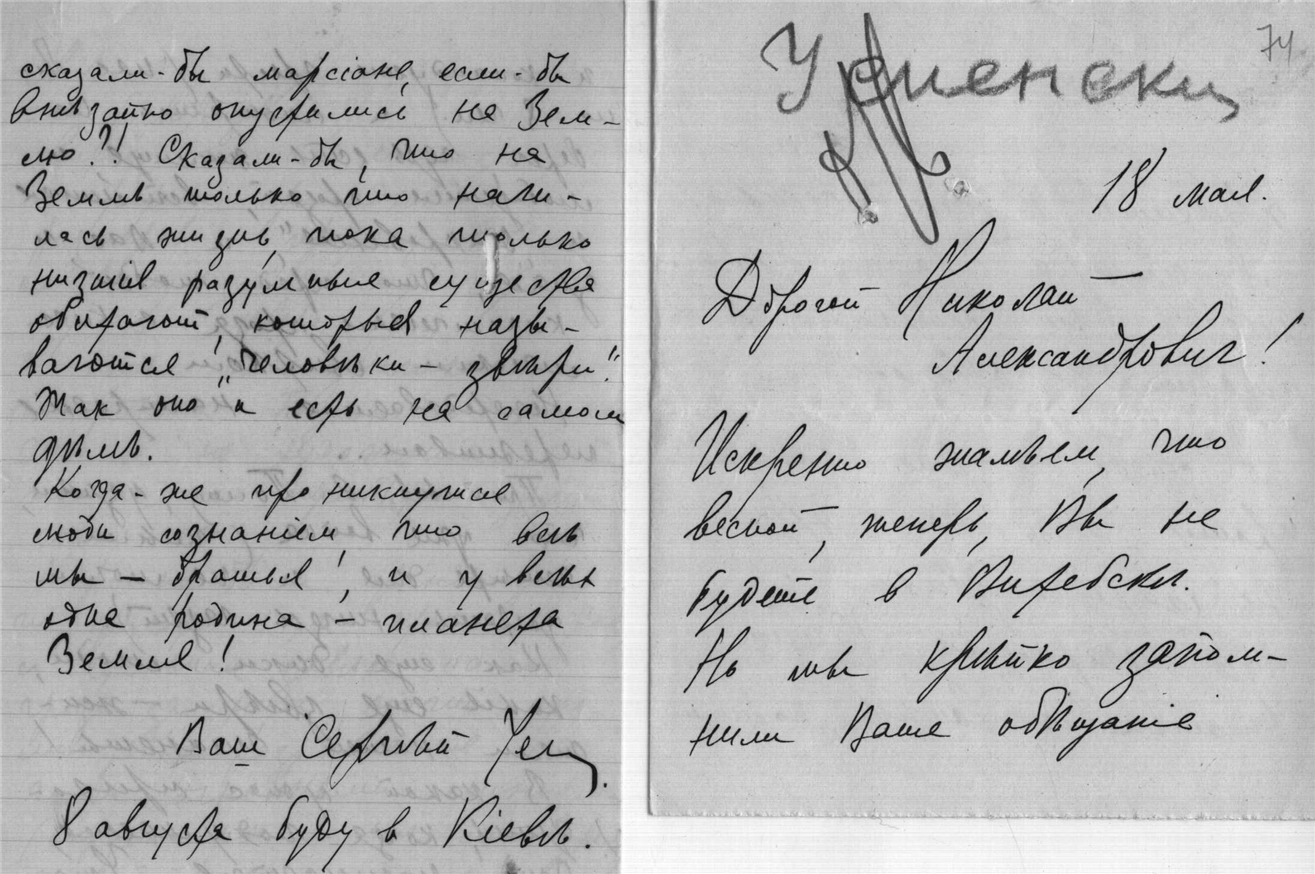 сказали-бы марсiане, если-бы
внѣзапно опустились на Зем-
лю?! Сказали-бы, что на
Землѣ только что нача-
лась жизнь, пока только
низшiя разумныя существа
обитают, которыя назы-
ваются „человѣки – звѣри“.
Так оно и есть на самом
дѣлѣ.
Когда-же проникнутся
люди сознанiем, что всѣ
мы – братья!, и у всѣх
одна родина – планета
Земля!
Ваш Сергѣй
8 августа буду в Кiевѣ.
74
Успенский
18 мая.
Дорогой Николай
Александрович!
Искренно жалѣем, что
весной, теперь, Вы не
будете в Витебскѣ.
Но мы крѣпко запом-
нили Ваше обѣщанiе